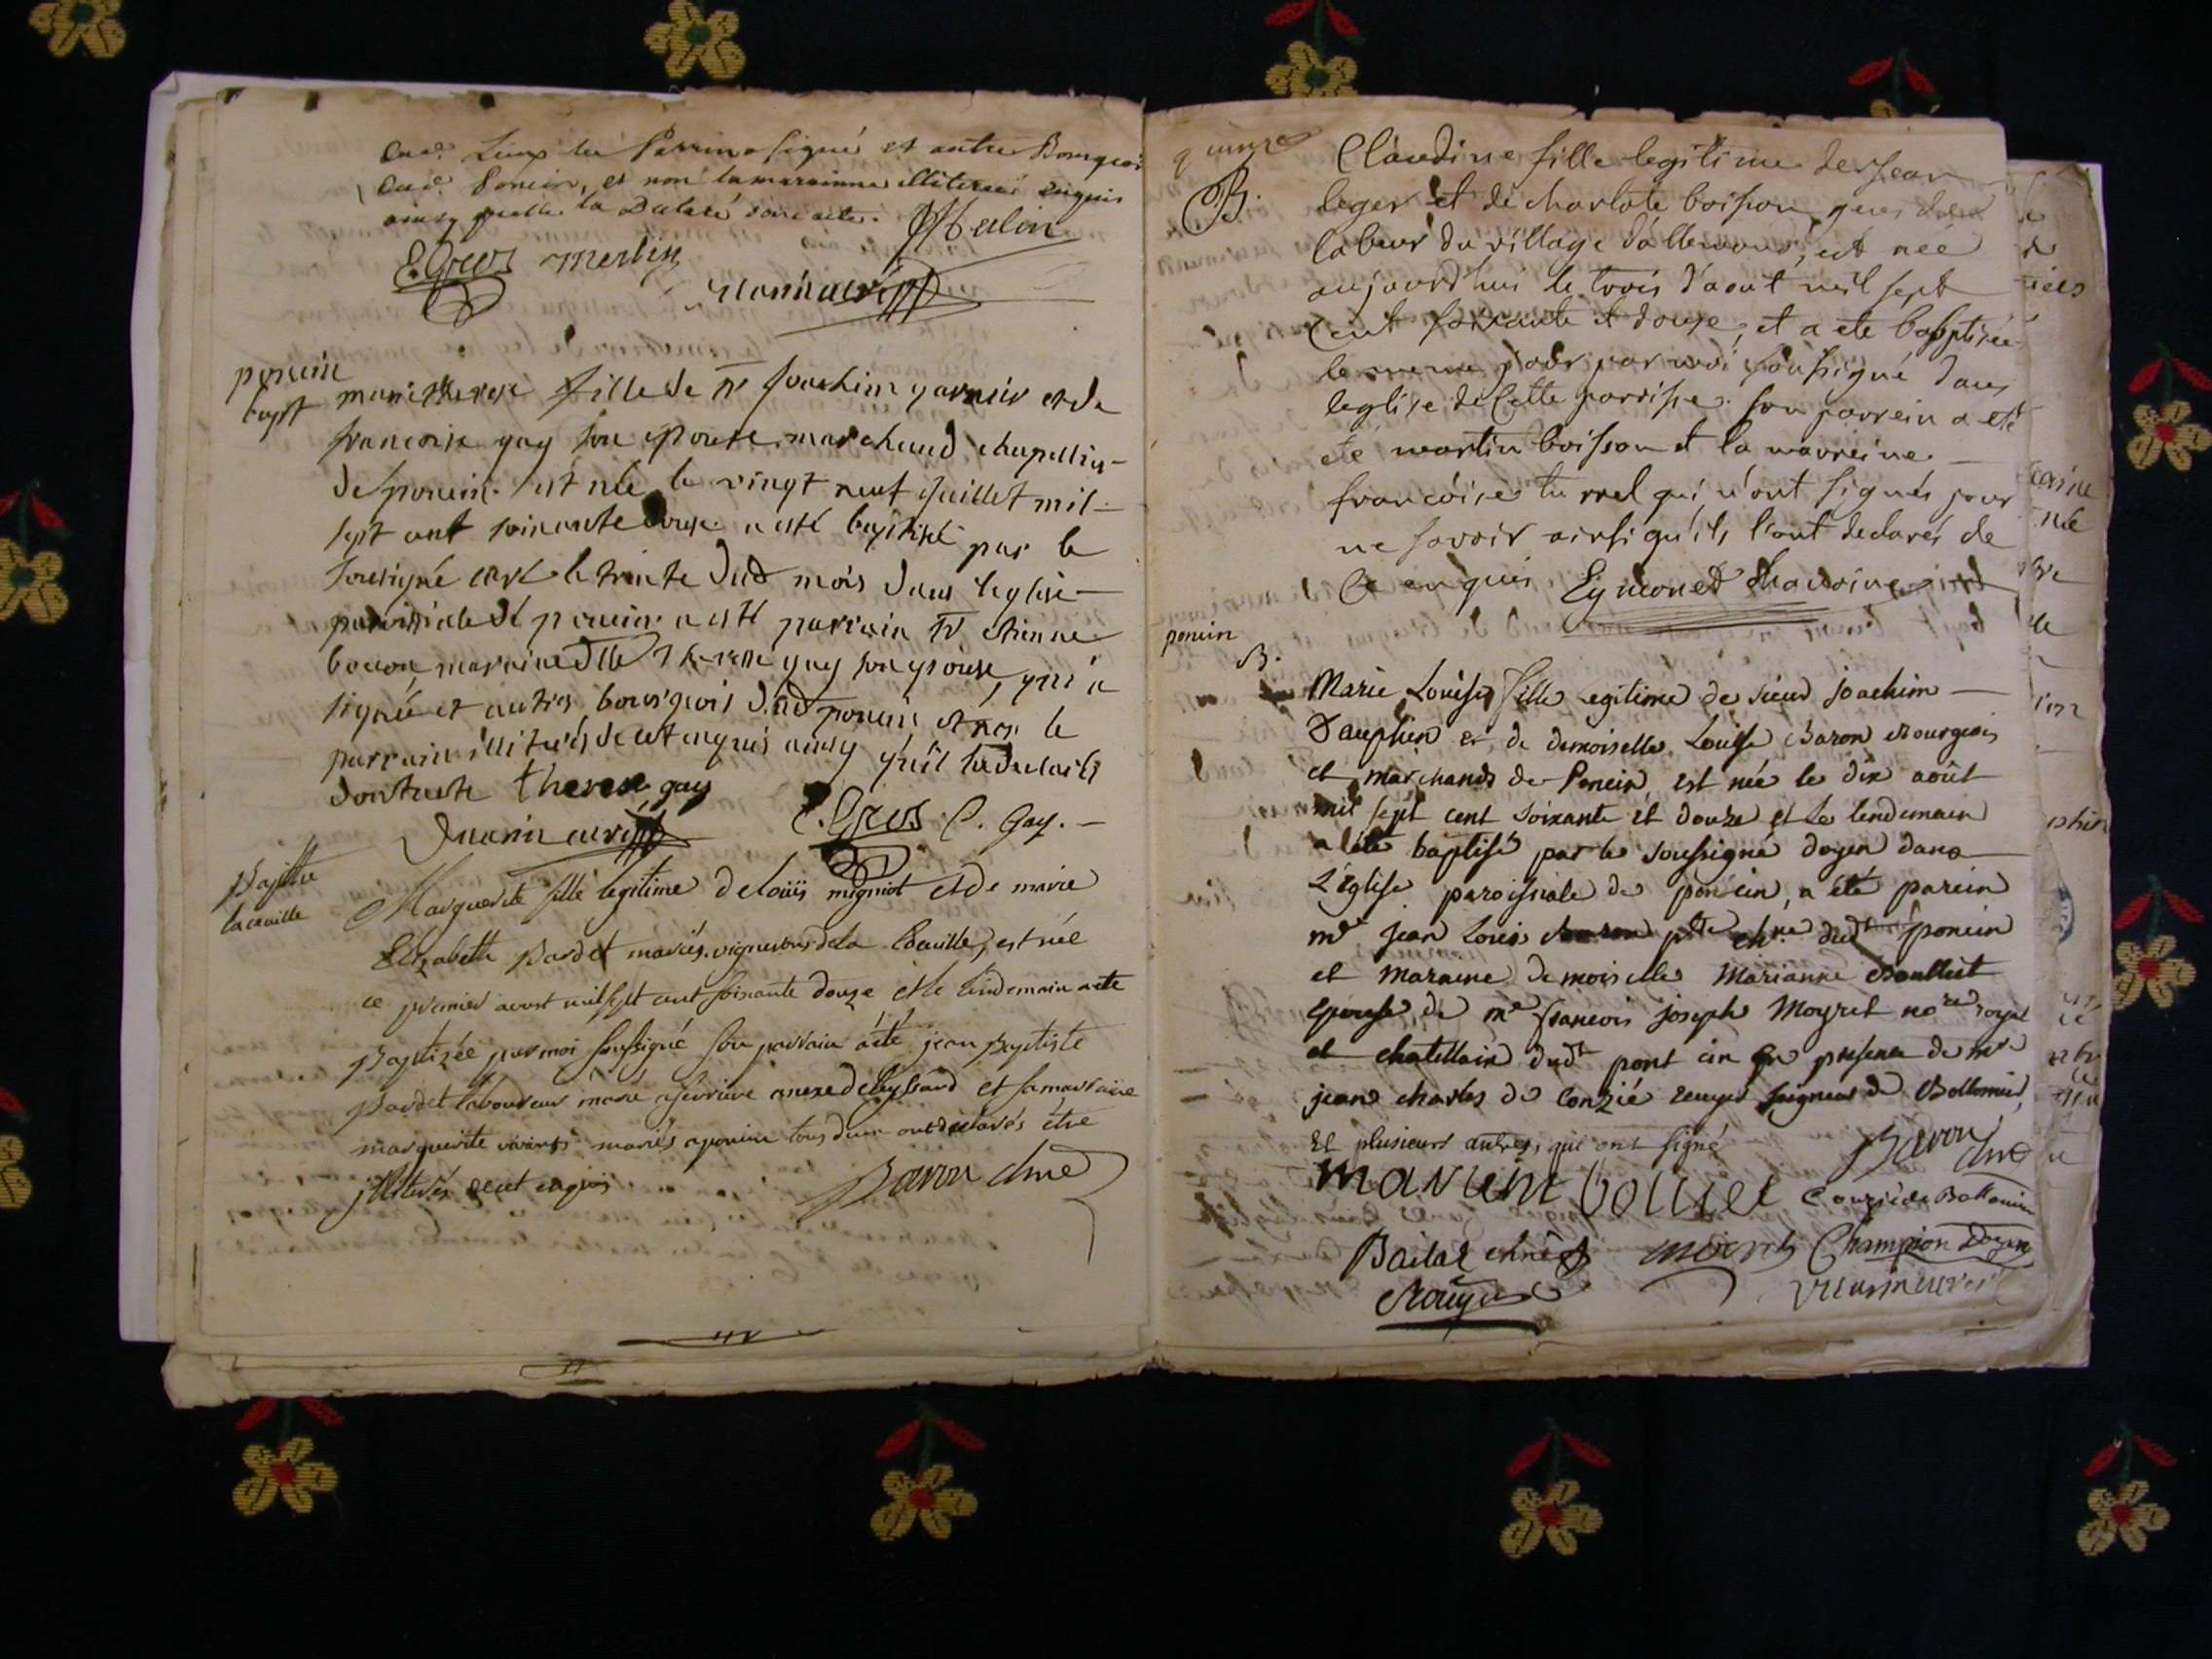 Lieux le Parrin a signé et autre Bourgeois
Poncin, et non la marainne illiterée enquis
ainsy quelle la Déclaré
C. Gros Merlin
poncin
bapt
marie therese fille de sr joachim garnier et de
francoise gay son epouse marchand chapellier
de poncin est née le vingt neuf juillet mil
sept cent soixante douze a esté baptisée par le
sousigné curé le trente dud mois dans leglise
parroissiale de poncin a esté parrain sr etienne
bocon, marraine dlle therese gay son epouse, qui a
signée et autres bourgeois dud poncin, et non le
parrain illiteré de cet enquis ainsy qu'il la declaré
dont acte therese gay
C. Gros C. Gay.
Baptême
la cueille
Marguerite fille legitime de loüis migniot et de marie
Elizabeth Bardet mariés vignerons de la Coueille, est née
ce premier aoust mil sept cent soixante douze et le lendemain a eté
Baptizée par moi soussigné son parrain a été jean Baptiste
Bardet laboureur marié a servieve anexe de leyssard et sa marraine
marguerite mariés a poncin tous deux ont declarés étre
illiterés de cet enquis
Baron
quinze
B.
Claudine fille legitime de Jean
leger et de charlote boisson, gens de
labeur du village d'allemond, est née
aujourd'hui le trois d'aout mil sept
Cent soixante et douze, et a eté baptisée
le meme jour par moi soussigné dans
leglise de Cette parroisse. son parrein a eté
eté martin boisson et la marreine
francoise turrel qui n'ont signés pour
ne savoir ainsi qu'ils l'ont declarés de
Ce enquis Eymonet Chanoine
poncin
B.
Marie Louise fille legitime de sieur joachim
Dauphin et de demoiselle Louise Baron Bourgeois
et marchands de Poncin, est née le dix août
mil sept cent soixante et douze et le lendemain
a été baptisé par le soussigné doyen dans
L'Eglise paroissiale de poncin, a été parein
mre jean Louis ptre chne dudt poncin
et maraine demoiselle Marianne
epouse de me francois joseph Moyret nore royal
et chatellain dudt pont cin en presence de mre
jean charles de Conzié seigneur de Bollomier,
Et plusieurs autres, qui ont signé
Baron
Conzié de Bollomier
Champion Doyen
Rouyer